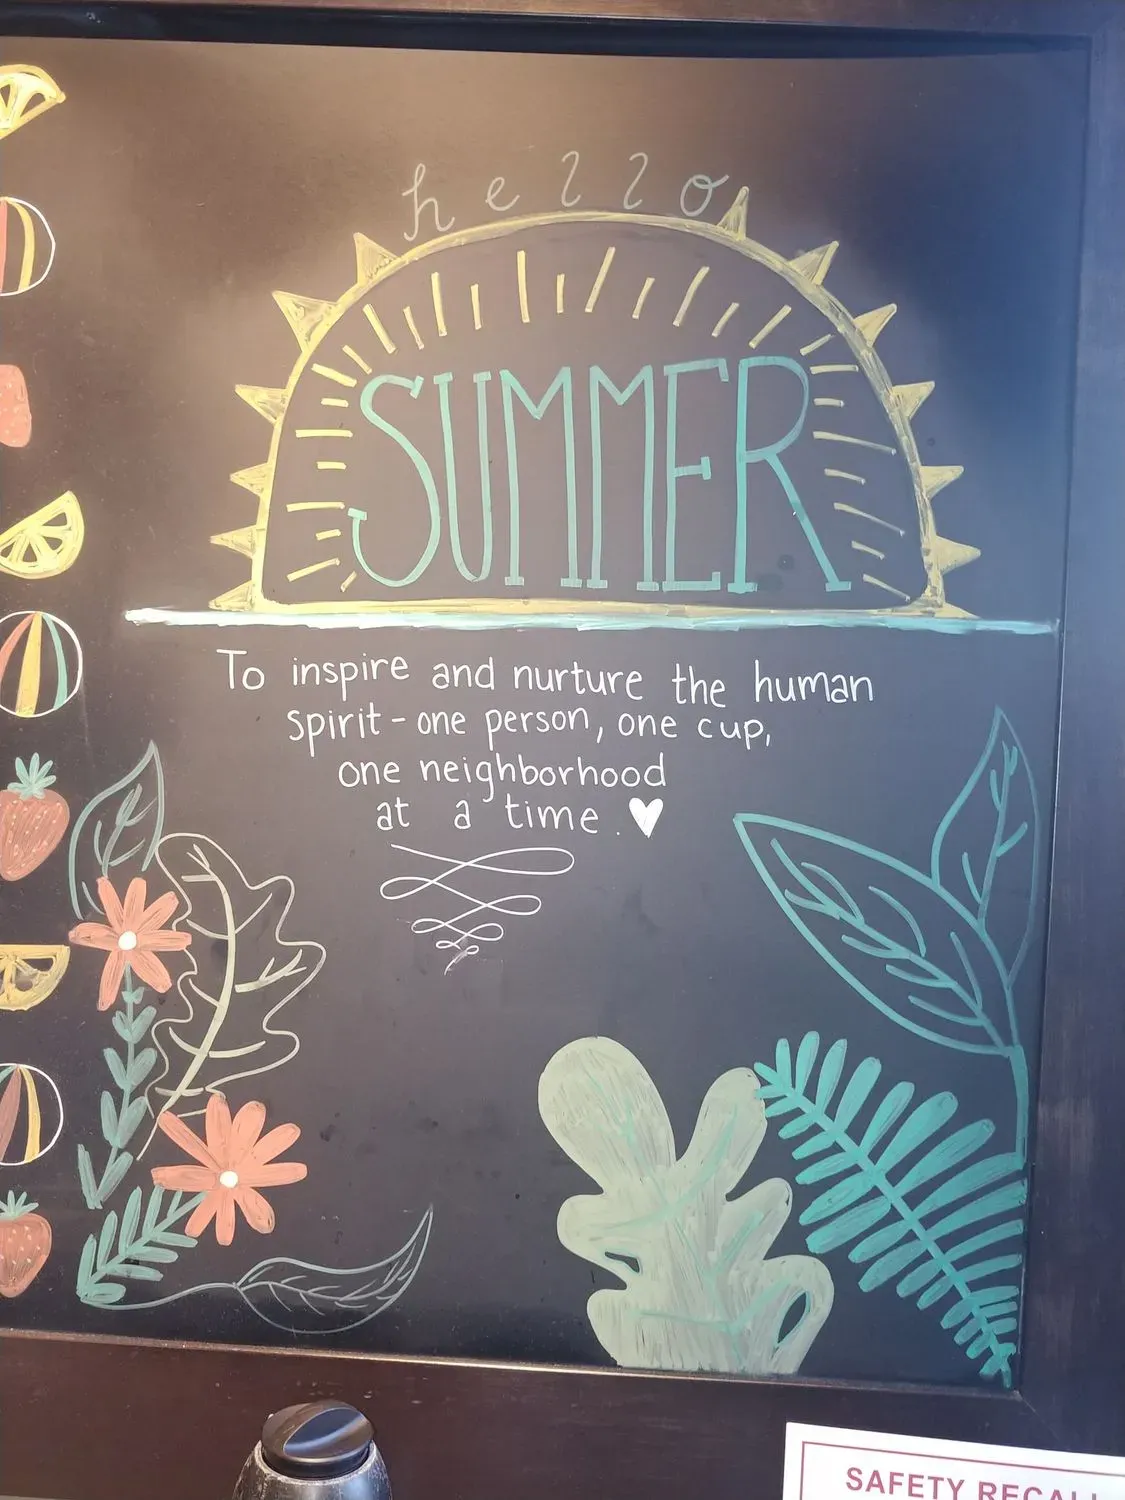 hello
SUMMER
To inspire and nurture the human
spirit - one person, one cup,
one neighborhood
at a time. ♥
SAFETY RECALL